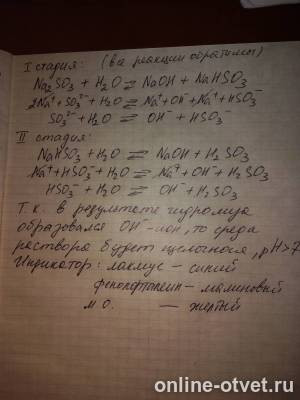 I стадия: (все реакции обратимы)
Na₂SO₃ + H₂O ⇌ NaOH + NaHSO₃
2Na⁺ + SO₃²⁻ + H₂O ⇌ Na⁺ + OH⁻ + Na⁺ + HSO₃⁻
SO₃²⁻ + H₂O ⇌ OH⁻ + HSO₃⁻
II стадия:
NaHSO₃ + H₂O ⇌ NaOH + H₂SO₃
Na⁺ + HSO₃⁻ + H₂O ⇌ Na⁺ + OH⁻ + H₂SO₃
HSO₃⁻ + H₂O ⇌ OH⁻ + H₂SO₃
Т.к. в результате гидролиза
образовался OH⁻-ион, то среда
раствора будет щелочная, pH>7
Индикатор: лакмус – синий
фенолфталеин – малиновый
м.о. – желтый
online-otvet.ru